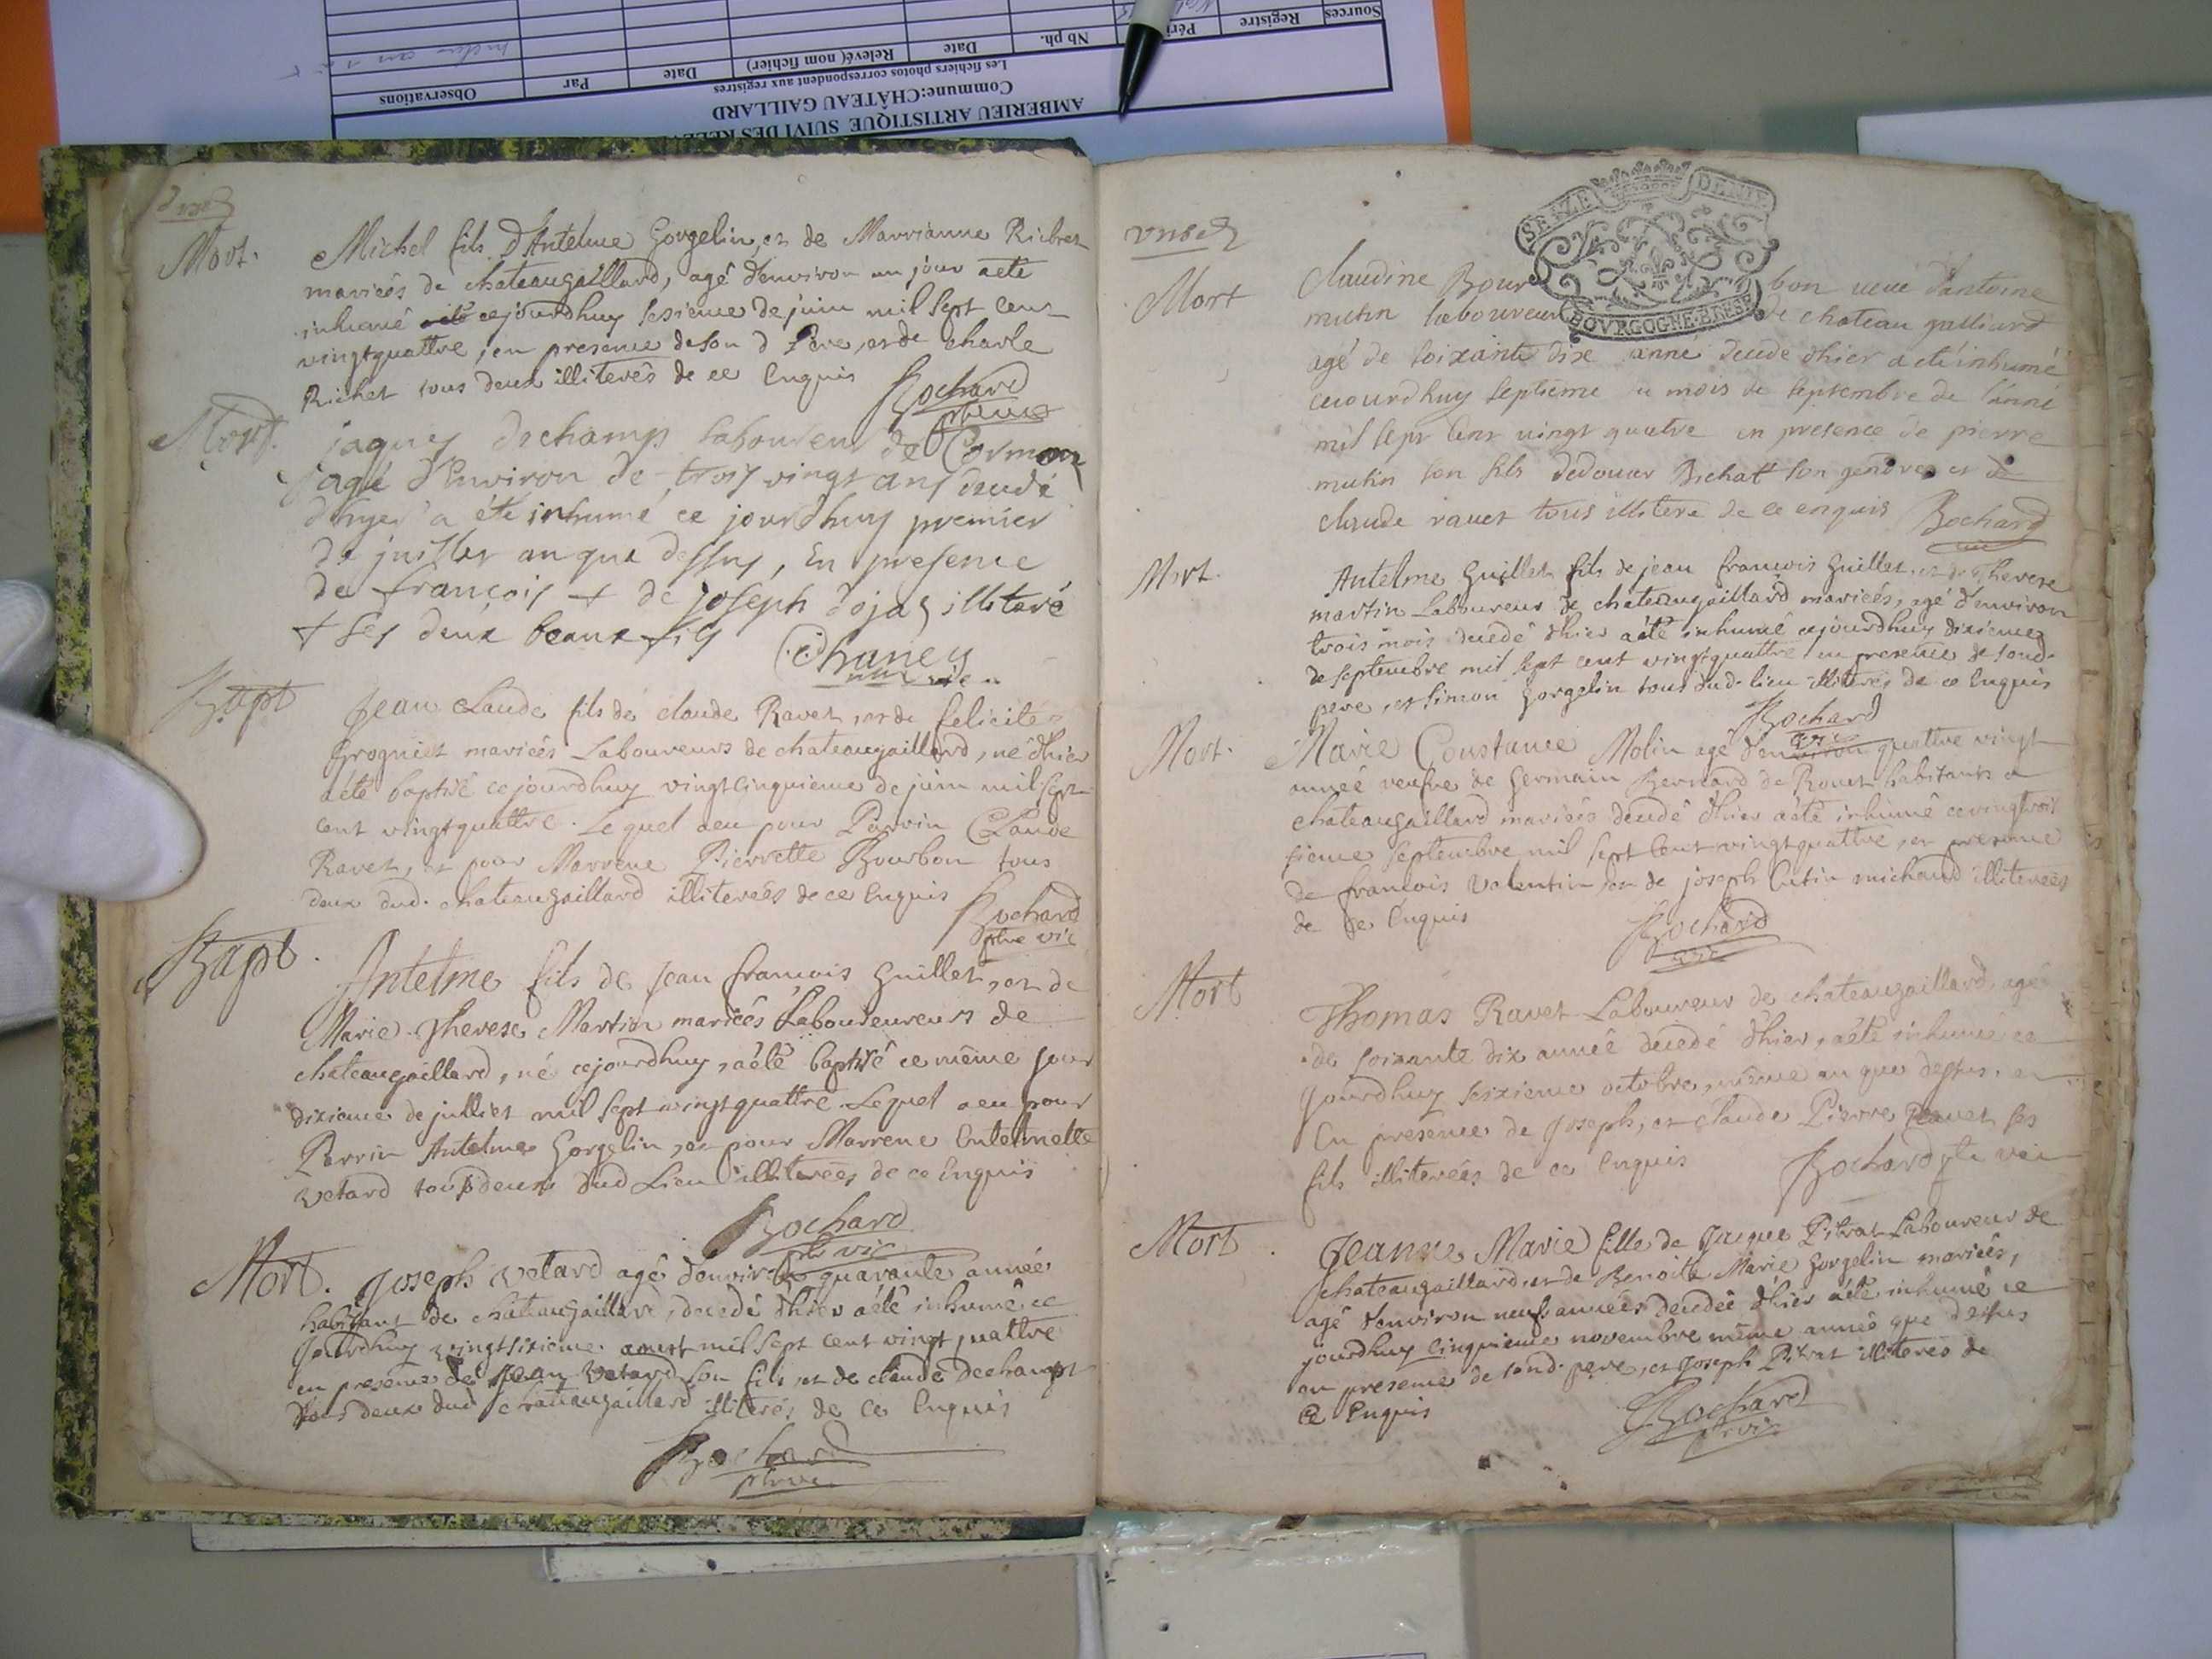 AMBERIEU ARTISTIQUE SUIVI DES
Commune:CHÂTEAU GAILLARD
Les fichiers photos correspondent aux registres
Sources Registre Nb ph. Date Relevé(nom fichier) Date Par Observations
Mort.
Michel fils D'Antelme Gorgelin, et de Marrianne Richet
mariéés de chateaugaillard, agé d'environ un jour aété
inhumé cejourdhuy sesieme de juin mil sept cent
vingtquattre, en presence de son d Pere, et de charle
Richet tous deux illiterés de ce Enquis Bochard
Mort.
jaques dechamp laboureur de Cormoz
agé d'Environ de trois vingt ans decedé
d'hyer a été inhumé ce jourdhuy premier
de juillet an que dessus, En presence
de françois + de joseph dojat illitaré
+ ses deux beaux fils
Bapt
Jean Claude fils de claude Ravet, et de felicité
grogniet mariéés Laboureurs de chateaugaillard, né d'hier
aété baptisé cejourdhuy vingtcinquieme de juin mil sept
cent vingtquattre. Le quel aeu pour Parrin Claude
Ravet, et pour Marrene Pierrette Bourbon tous
deux dud. chateaugaillard illiteréés de ce Enquis Bochard
ptre vic
Bapt.
Antelme fils de Jean françois Guillet, et de
Marie Therese Martin mariéés Laboureureurs de
chateaugaillard, né cejourdhuy, aété baptisé ce même jour
dixieme de julliet mil sept vingtquattre. Lequel aeu pour
Parrin Antelme Gorgelin, et pour Marrene Entelmette
vetard tous deux dud Lieu illiteréés de ce Enquis
Bochard
ptre vic
Mort. Joseph vetard agé d'environ quarante année
habitant de chateaugaillard, decedé d'hier aété inhumé ce
jourdhuy vingtsixieme aoust mil sept cent vingt quattre
en presence de Jean vetard son fils, et de claude dechamps
tous deux dud chateaugaillard illiterés de ce Enquis
Bochard
Mort
Claudine Bour bon veuve d'antoine
mutin laboureur de chateau galliard
agé de soixante dix anné decedé d'hier a eté inhumé
cejourd huy septieme du mois de septembre de l'anné
mil sept cent vingt quatre en presence de pierre
mutin son fils dédouar Bichat son gendre et de
claude ravet tous illitere de ce enquis Bochard
Mort.
Antelme Guillet fils de jean francois Guillet, et de Therese
martin Laboureur de chateaugaillard mariéés, agé d'environ
trois mois decedé d'hier aété inhumé cejourdhuy dixieme
de septembre mil sept cent vingtquattre en presence de sond.
pere, et simon Gorgelin tous dud. lieu illiterés de ce Enquis
Bochard
vic
Mort.
Marie Constance Molin agé d'environ quattre vingt
année veufve de Germain Bernard de Rouet habitants a
chateaugaillard mariéés decedé d'hier aété inhumé ce vingttroi
sieme septembre mil sept cent vingtquattre, en presence
de françois Valentin, et de joseph Cutin michaud illiteréés
de ce Enquis
Bochard
vic
Mort
Thomas Ravet Laboureur de chateaugaillard, agé
de soixante dix année decedé d'hier, aété inhumé ce
jourdhuy seizieme octobre, même an que dessus, en
En presence de Joseph, et claude Pierre Ravet ses
fils illiteréés de ce Enquis Bochard ptre vic
Mort.
Jeanne Marie fille de Jacque Pitrat Laboureur de
chateaugaillard, et de Benoite Marie Gorgelin mariéés,
agé d'environ neuf années decedée d'hier aété inhumé ce
jourdhuy cinquieme novembre même année que dessus
en presence de sond. pere, et Joseph Pitrat illiterés de
ce Enquis
Bochard
vic
SEIZE DENIE
BOVRGOGNE·BRESSE